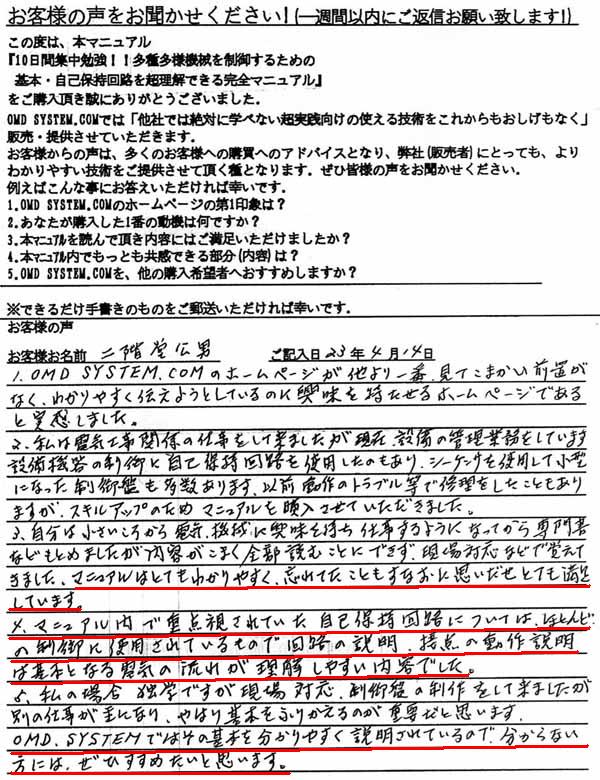 お客様の声をお聞かせください！(一週間以内にご返信お願い致します！)
この度は、本マニュアル
『10日間集中勉強！！多種多様機械を制御するための
基本・自己保持回路を超理解できる完全マニュアル』
をご購入頂き誠にありがとうございました。
OMD SYSTEM.COMでは「他社では絶対に学べない超実践向けの使える技術をこれからもおしげもなく」
販売・提供させていただきます。
お客様からの声は、多くのお客様への購買へのアドバイスとなり、弊社(販売者)にとっても、より
わかりやすい技術をご提供させて頂く種となります。ぜひ皆様の声をお聞かせください。
例えばこんな事にお答えいただければ幸いです。
1.OMD SYSTEM.COMのホームページの第1印象は？
2.あなたが購入した1番の動機は何ですか？
3.本マニュアルを読んで頂き内容にはご満足いただけましたか？
4.本マニュアル内でもっとも共感できる部分(内容)は？
5.OMD SYSTEM.COMを、他の購入希望者へおすすめしますか？
※できるだけ手書きのものをご郵送いただければ幸いです。
お客様の声
お客様お名前 二階堂公男 ご記入日23年4月14日
1.OMD SYSTEM.COMのホームページが他より一番見てこまかい前置が
なく、わかりやすく伝えようとしているのに興味を持たせるホームページである
と実感しました。
2.私は電気工事関係の仕事をして来ましたが現在、設備の管理業務をしています
設備機器の制御に自己保持回路を使用したのもあり、シーケンサを使用して小型
になった制御盤も多数あります、以前動作のトラブル等で修理をしたこともあり
ますが、スキルアップのためマニュアルを購入させていただきました。
3.自分は小さいころから電気、機械に興味を持ち仕事するようになってから専門書
などもとめましたが内容がこまく全部読むことにできず、現場対応などで覚えて
きました、マニュアルはとてもわかりやすく、忘れてたこともすなおに思いだせとても満足
しています。
4.マニュアル内で重点視されていた自己保持回路については、ほとんど
の制御に使用されているもので回路の説明、接点の動作説明
は基本となる電気の流れが理解しやすい内容でした。
5.私の場合独学ですが現場対応、制御盤の制作をして来ましたが
別の仕事が主になり、やはり基本をふりかえるのが重要だと思います。
OMD.SYSTEMではその基本を分かりやすく説明されているので、分からない
方には、ぜひすすめたいと思います。